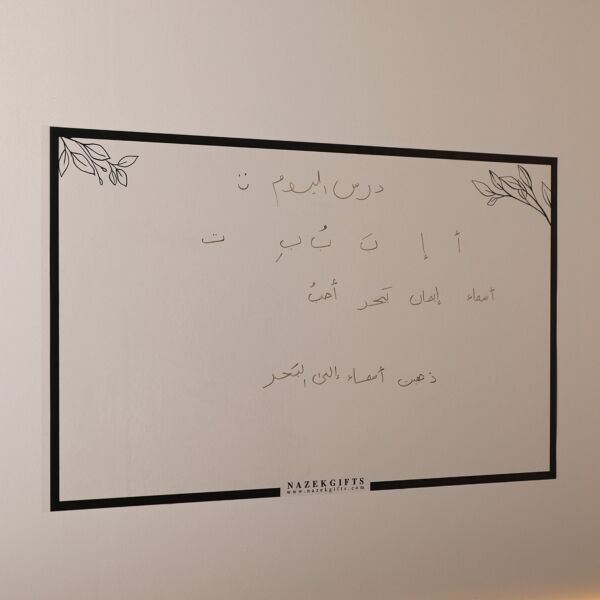 درس اليوم ت
أ إ بَ بُ بِ ت
أسماء إيمان بَحر أحبُ
ذهبت أسماء إلى البَحر
NAZEKGIFTS
www.nazekgifts.com